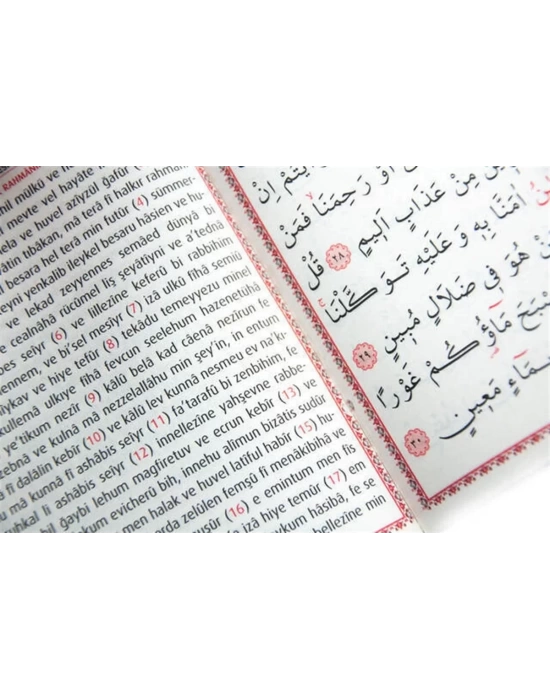 RAHMAN
hil mülkü ve
l mevte vel hayâte
ve huvel azîyzül gafûr
tıbâkan, mâ terâ fî halkır rahmân
besara hel terâ min futûr (4) sümmer-
yenkalib ileykel besaru hâsien ve hu-
ve lekad zeyyennes semâed dünyâ bi
e cealnâhâ rücûmel liş şeyâtîyni ve a'tednâ
bes seiyr (6) ve lillezîne keferû bi rabbihim
ennem, ve bi'sel mesîyr (7) izâ ulkû fîhâ semiû
ve hiye tefûr (8) tekâdu temeyyezu minel
kullemâ ulkıye fîhâ fevcun seelehum hazenetühâ
e'tikum nezîr (9) kâlû belâ kad câenâ nezîrun fe
zebnâ ve kulnâ mâ nezzelallâhu min şey'in, in entum
â fî dalâlin kebîr (10) ve kâlû lev kunnâ nesmeu ev na'k-
u mâ kunnâ fî ashâbis seiyr (11) fa'tarafû bi zenbihim, fe
uhkal li ashâbis seiyr (12) innellezîne yahşevne rabbe-
bil ğaybi lehum mağfiretuv ve ecrun kebîr (13) ve
kum evicherû bih, innehu alîmun bizâtis sudûr
men halak ve huvel latîful habîr (15) hu-
arda zelûlen femşû fî menâkibihâ ve
nuşûr (16) e emintum men fis
izâ hiye temûr (17) em
aykum hâsibâ, fe se
bellezîne min
اَوْ رَحِمَنَاۙ فَمَنْ
مِنْ عَذَابٍ اَلٖيمٍ ﴿٢٨﴾ قُلْ
اٰمَنَّا بِهٖ وَعَلَيْهِ تَوَكَّلْنَاۚ
هُوَ فٖي ضَلَالٍ مُبٖينٍ ﴿٢٩﴾
مَٓاؤُ۬كُمْ غَوْرًا
مَعٖينٍ ﴿٣٠﴾